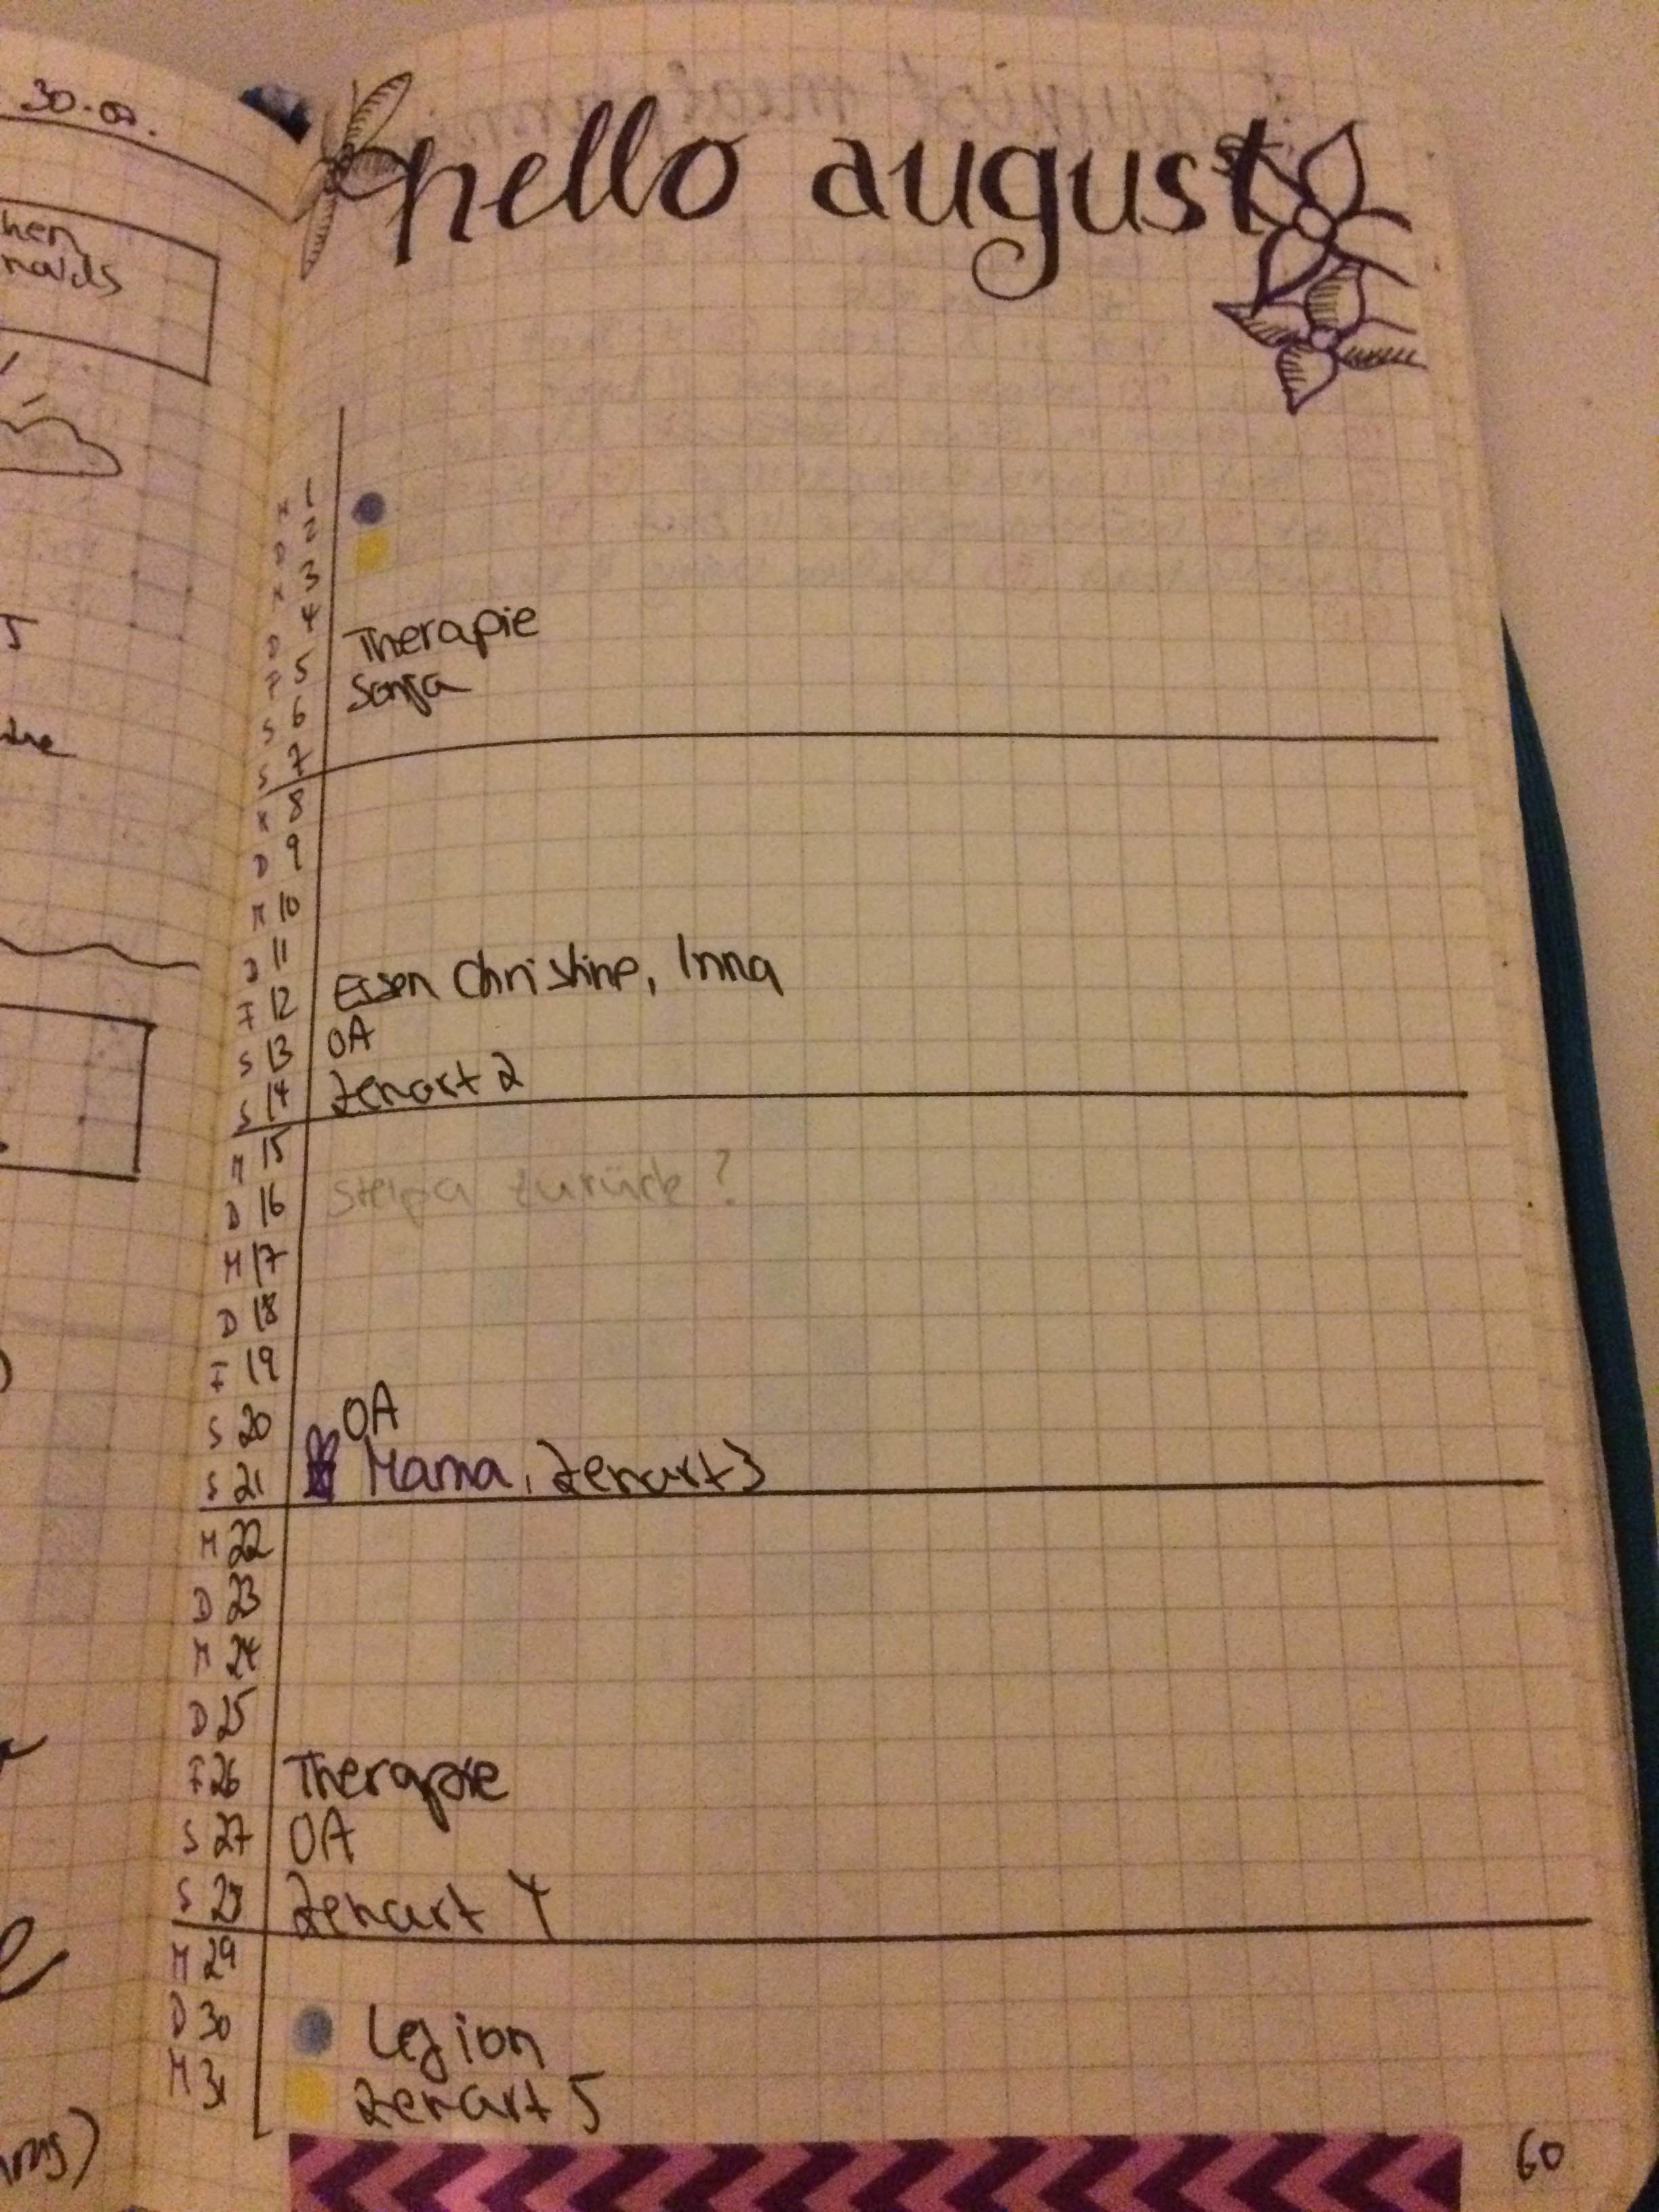 30.07.
hello august
hen
naids
M 1
D 2
M 3
D 4
F 5 Therapie
S 6 Sonja
S 7
M 8
D 9
M 10
D 11
F 12 Essen Christine, Inna
S 13 OA
S 14 Zenart 2
M 15
D 16 zurück?
M 17
D 18
F 19
S 20 OA
S 21 Mama, Zenart 3
M 22
D 23
M 24
D 25
F 26 Therapie
S 27 OA
S 28 Zenart 4
M 29
D 30 Legion
M 31 Zenart 5
60